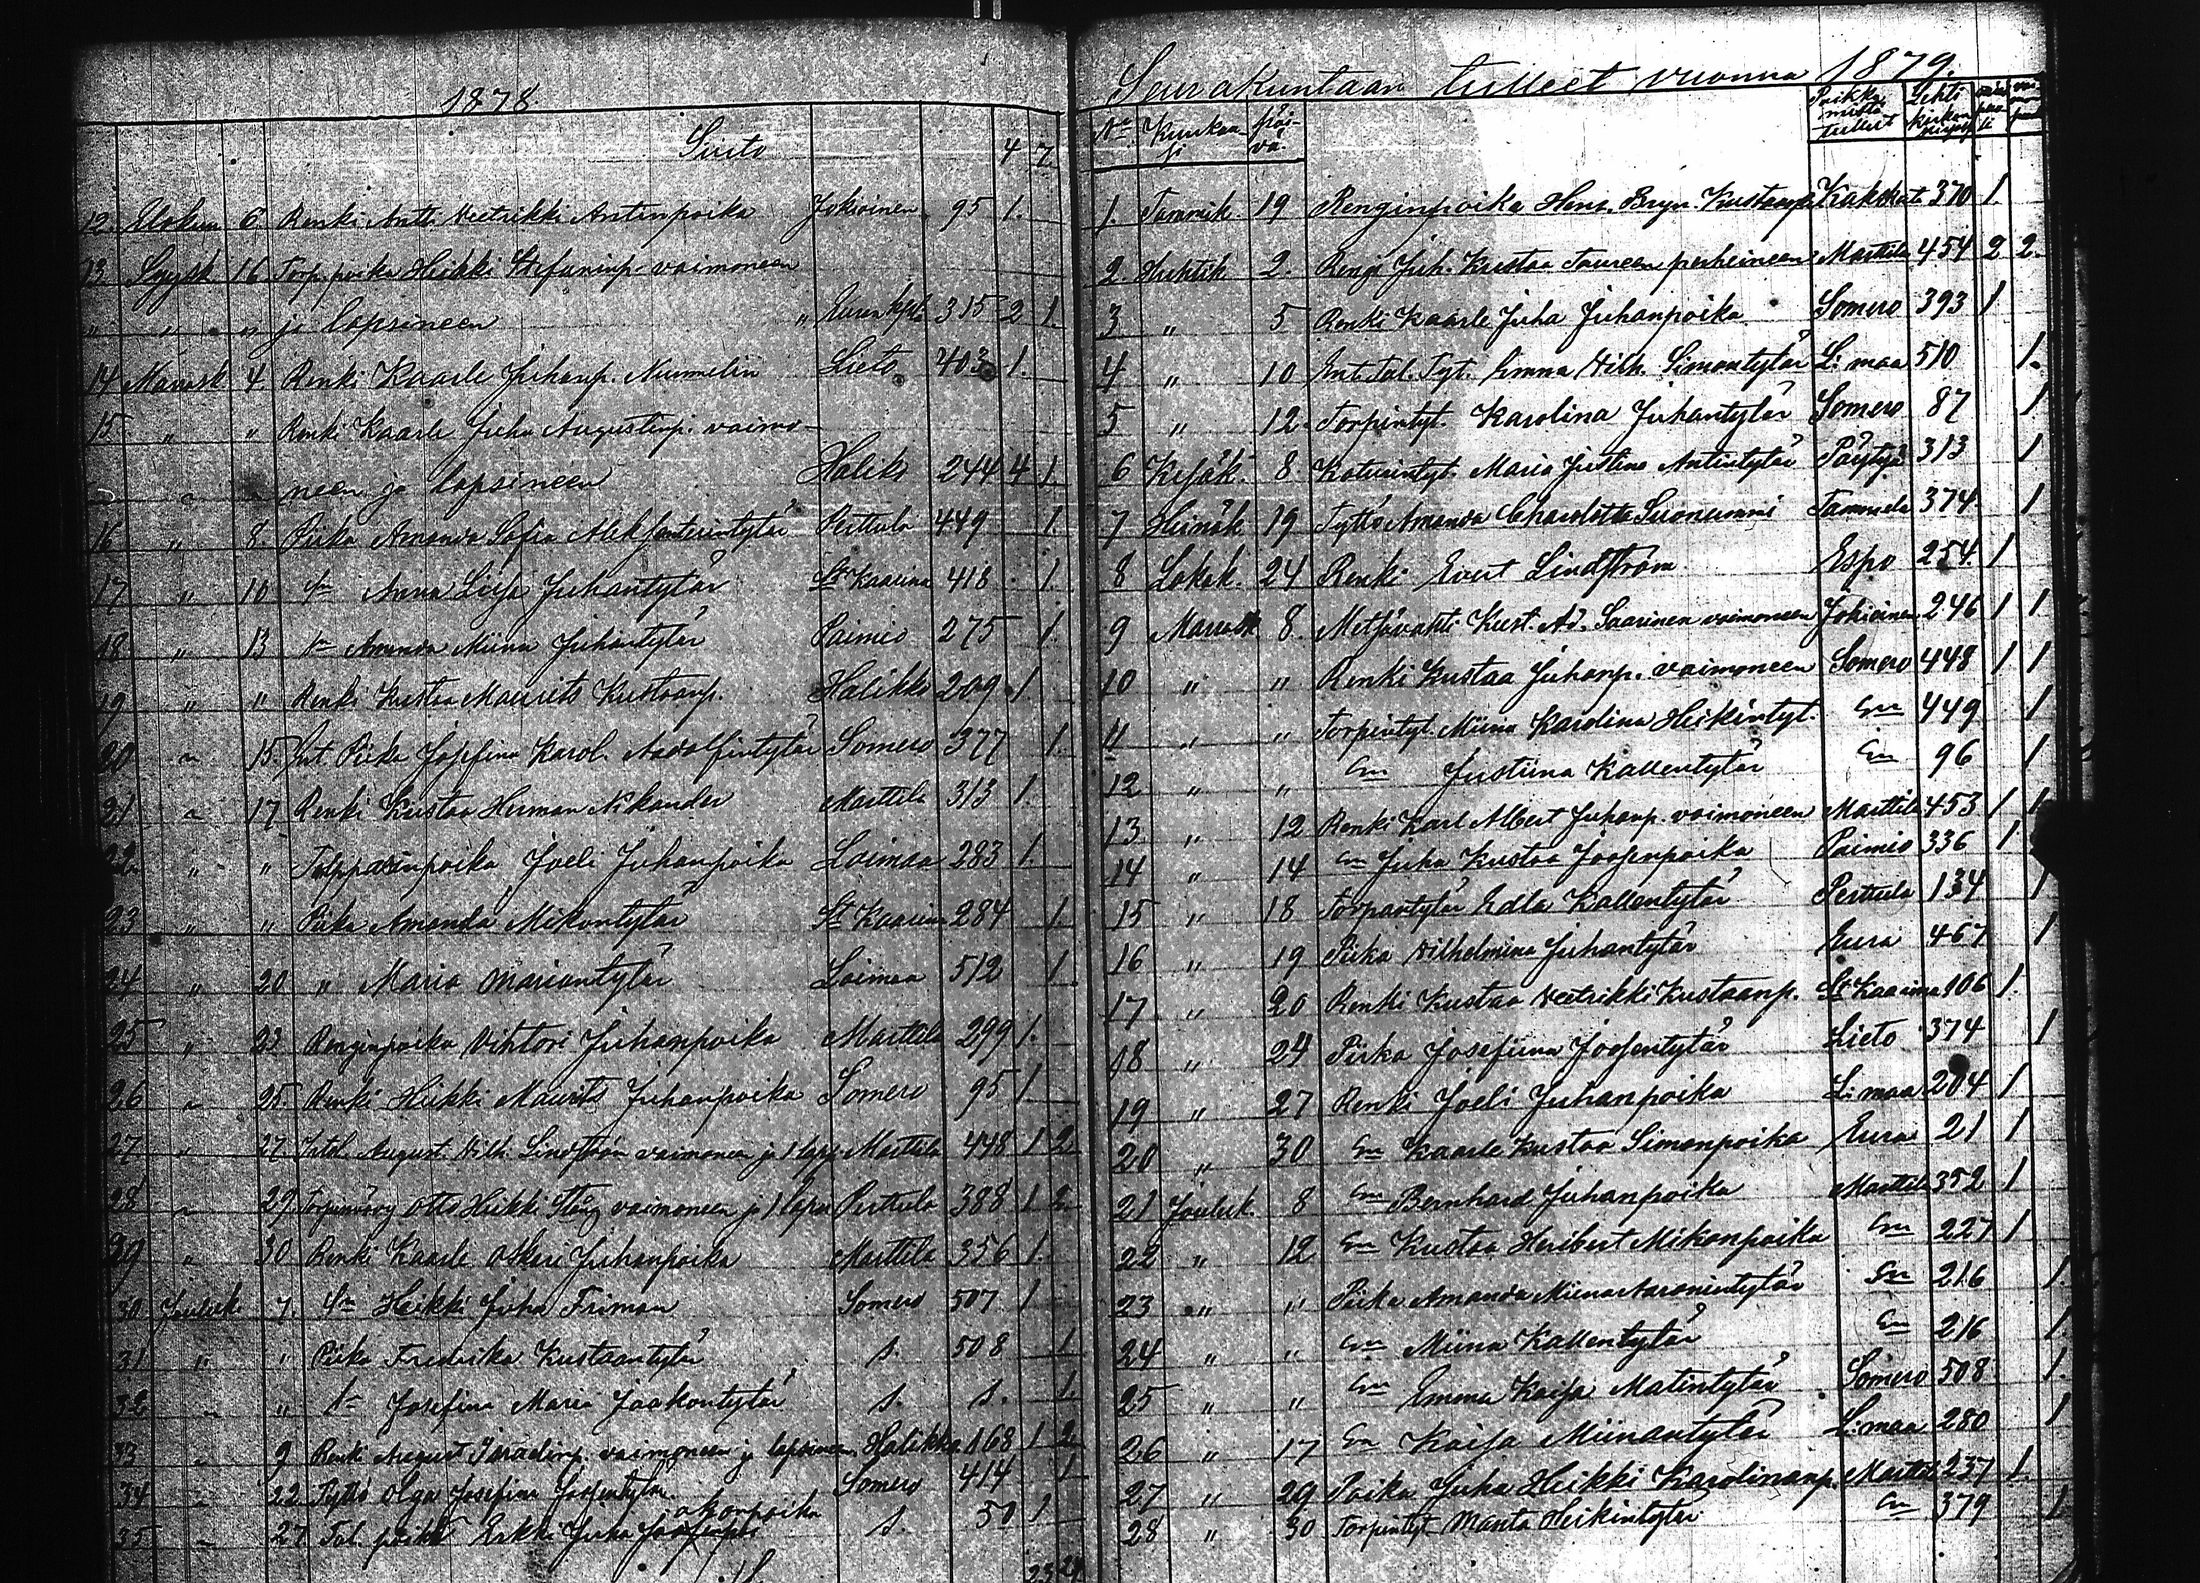 1878.
Siirto 4 7
12. Elokuu 6. Renki Antti Veetrikki Antinpoika Jokioinen 95 1.
13. Syysk 16 Torp. poika Heikki Stefaninp. vaimoneen
" " " ja lapsineen " 315 2 1.
14 Marrask 4 Renki Kaarle Juhanp. Nummelin Lieto 403 1.
15 " " Renki Kaarle Juha Augustinp. vaimo-
neen ja lapsineen Haliko 244 4 1.
16 " 8. Piika Amanda Sofia Aleksanterintytär Perttula 449 1.
17 " 10 Sn Anna Liisa Juhantytär St Kaarina 418 1.
18 " 13 Sn Amanda Miina Juhantytär Paimio 275 1.
19 " " Renki Kustaa Maurits Kustaanp. Halikko 209 1.
20 " 15. Int. Piika Josefina Karol. Aadolfintytär Somero 377 1.
21 " 17 Renki Kustaa Herman Nikander Marttila 313 1.
22 " " poika Joeli Juhanpoika Loimaa 283 1.
23 " " Piika Amanda Mikontytär St Kaarina 284 1.
24 " 20 " Maria Mariantytär Loimaa 512 1.
25 " 23 Renginpoika Vihtori Juhanpoika Marttila 299 1.
26 " 25 Renki Heikki Maurits Juhanpoika Somero 95 1
27 " 27. Itsel. August Vilh. Lindström vaimoneen ja 1 laps Marttila 448 1 2
28 " 29 Otto Heikki Stång vaimoneen ja 1 lapsi Perttula 388 1 2
29 " 30 Renki Kaarle Oskari Juhanpoika Marttila 356 1.
30. Jouluk. 7 Sn Heikki Juha Friman Somero 507 1
31 " " Piika Fredrika Kustaantytär s. 508 1
32 " " Sn Josefina Maria Jaakontytär s. s. 1.
33 " 9 Renki August vaimoneen ja lapsineen Halikko 168 1 2
34 " 22 Tyttö Olga Josefina Joosentytär Somero 414 1
akonpoika
35 " 27 Tal. poika Erkki Juha s. 50 1
23 24
Seurakuntaan tulleet vuonna 1879.
No Kuukausi Päivä. Paikka mistä tulleet Lehti kirkon kirjassa
1. Tammik. 19 Renginpoika Hans. Bryn. Kustaanp. 370 1.
2. Huhtik 2. Rengi Juh. Kustaa Taureen perheineen Marttila 454 2 2.
3 " 5 Renki Kaarle Juha Juhanpoika Somero 393 1
4 " 10 Int. tal. Tyt. Emma Vilh. Simontytär L:maa 510 1.
5 " 12. Torpintyt. Karolina Juhantytär Somero 87 1
6 Kesäk. 8. Maria Justina Antintytär Pöytyä 313 1
7 Heinäk 19 Tyttö Amanda Charlotta Suonummi Tammela 374. 1
8 Lokak. 24 Renki Evert Lindström Espo 254. 1
9 Marrask 8. Metsävahti Kust. Ad. Saarinen vaimoneen Jokioinen 246 1 1
10 " " Renki Kustaa Juhanp. vaimoneen Somero 448 1 1
11 " " Torpintyt. Miina Karolina Heikintyt. Sn 449 1
12 " " Sn Justiina Kallentytär Sn 96 1
13 " 12 Renki Karl Albert Juhanp. vaimoneen Marttila 453 1 1
14 " 14 Sn Juha Kustaa Joosenpoika Paimio 336 1
15 " 18 Torpantytär Edla Kallentytär Perttula 134 1
16 " 19 Piika Vilhelmina Juhantytär Eura 467 1
17 " 20 Renki Kustaa Veetrikki Kustaanp. St Kaarina 106 1.
18 " 24 Piika Josefiina Joosentytär Lieto 374 1
19 " 27 Renki Joeli Juhanpoika L:maa 204 1
20 " 30 Sn Kaarle Kustaa Simonpoika Eura 21 1
21 Jouluk. 8 Sn Bernhard Juhanpoika Marttila 352 1
22 " 12 Sn Kustaa Heribert Mikonpoika Sn 227 1
23 " " Piika Amanda Miina Aaronintytär Sn 216 1.
24 " " Sn Miina Kallentytär Sn 216 1.
25 " " Sn Emma Kaisa Matintytär Somero 508 1.
26 " 17 Sn Kaisa Miinantytär L:maa 280 1
27 " 29 Poika Juha Heikki Karolinanp. Marttila 237 1.
28 " 30 Torpintyt. Manta Heikintytär Sn 379 1.